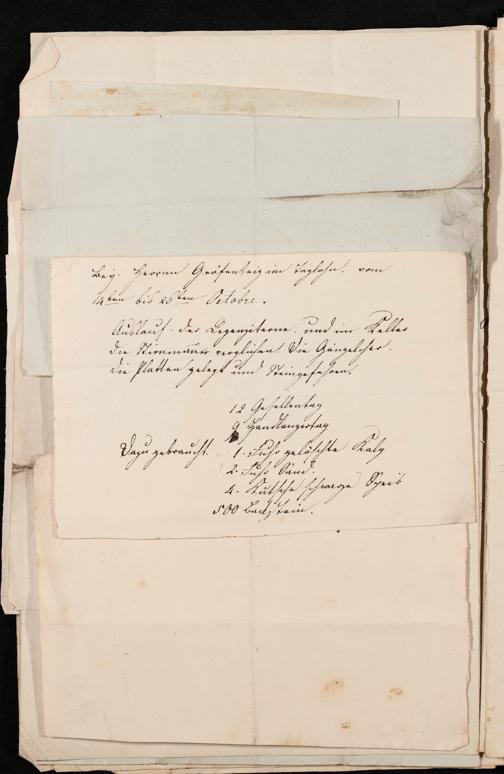 Bey. Herrn Gräfendzig im Taglohn. vom
14ten bis 20ten Octobre.
Auslauf der Regenziterne. und im Keller
die Steinmauer verglichen die Gängelcher.
die Platten gelegt und Steingefahren.
12 Gesellentag
9 Handlangertag
Dazu gebraucht. 1. Fuhr gelöschte Kalg
2. Fuhr Sand.
4. Kutsche schwarze Speis
500 Backstein.